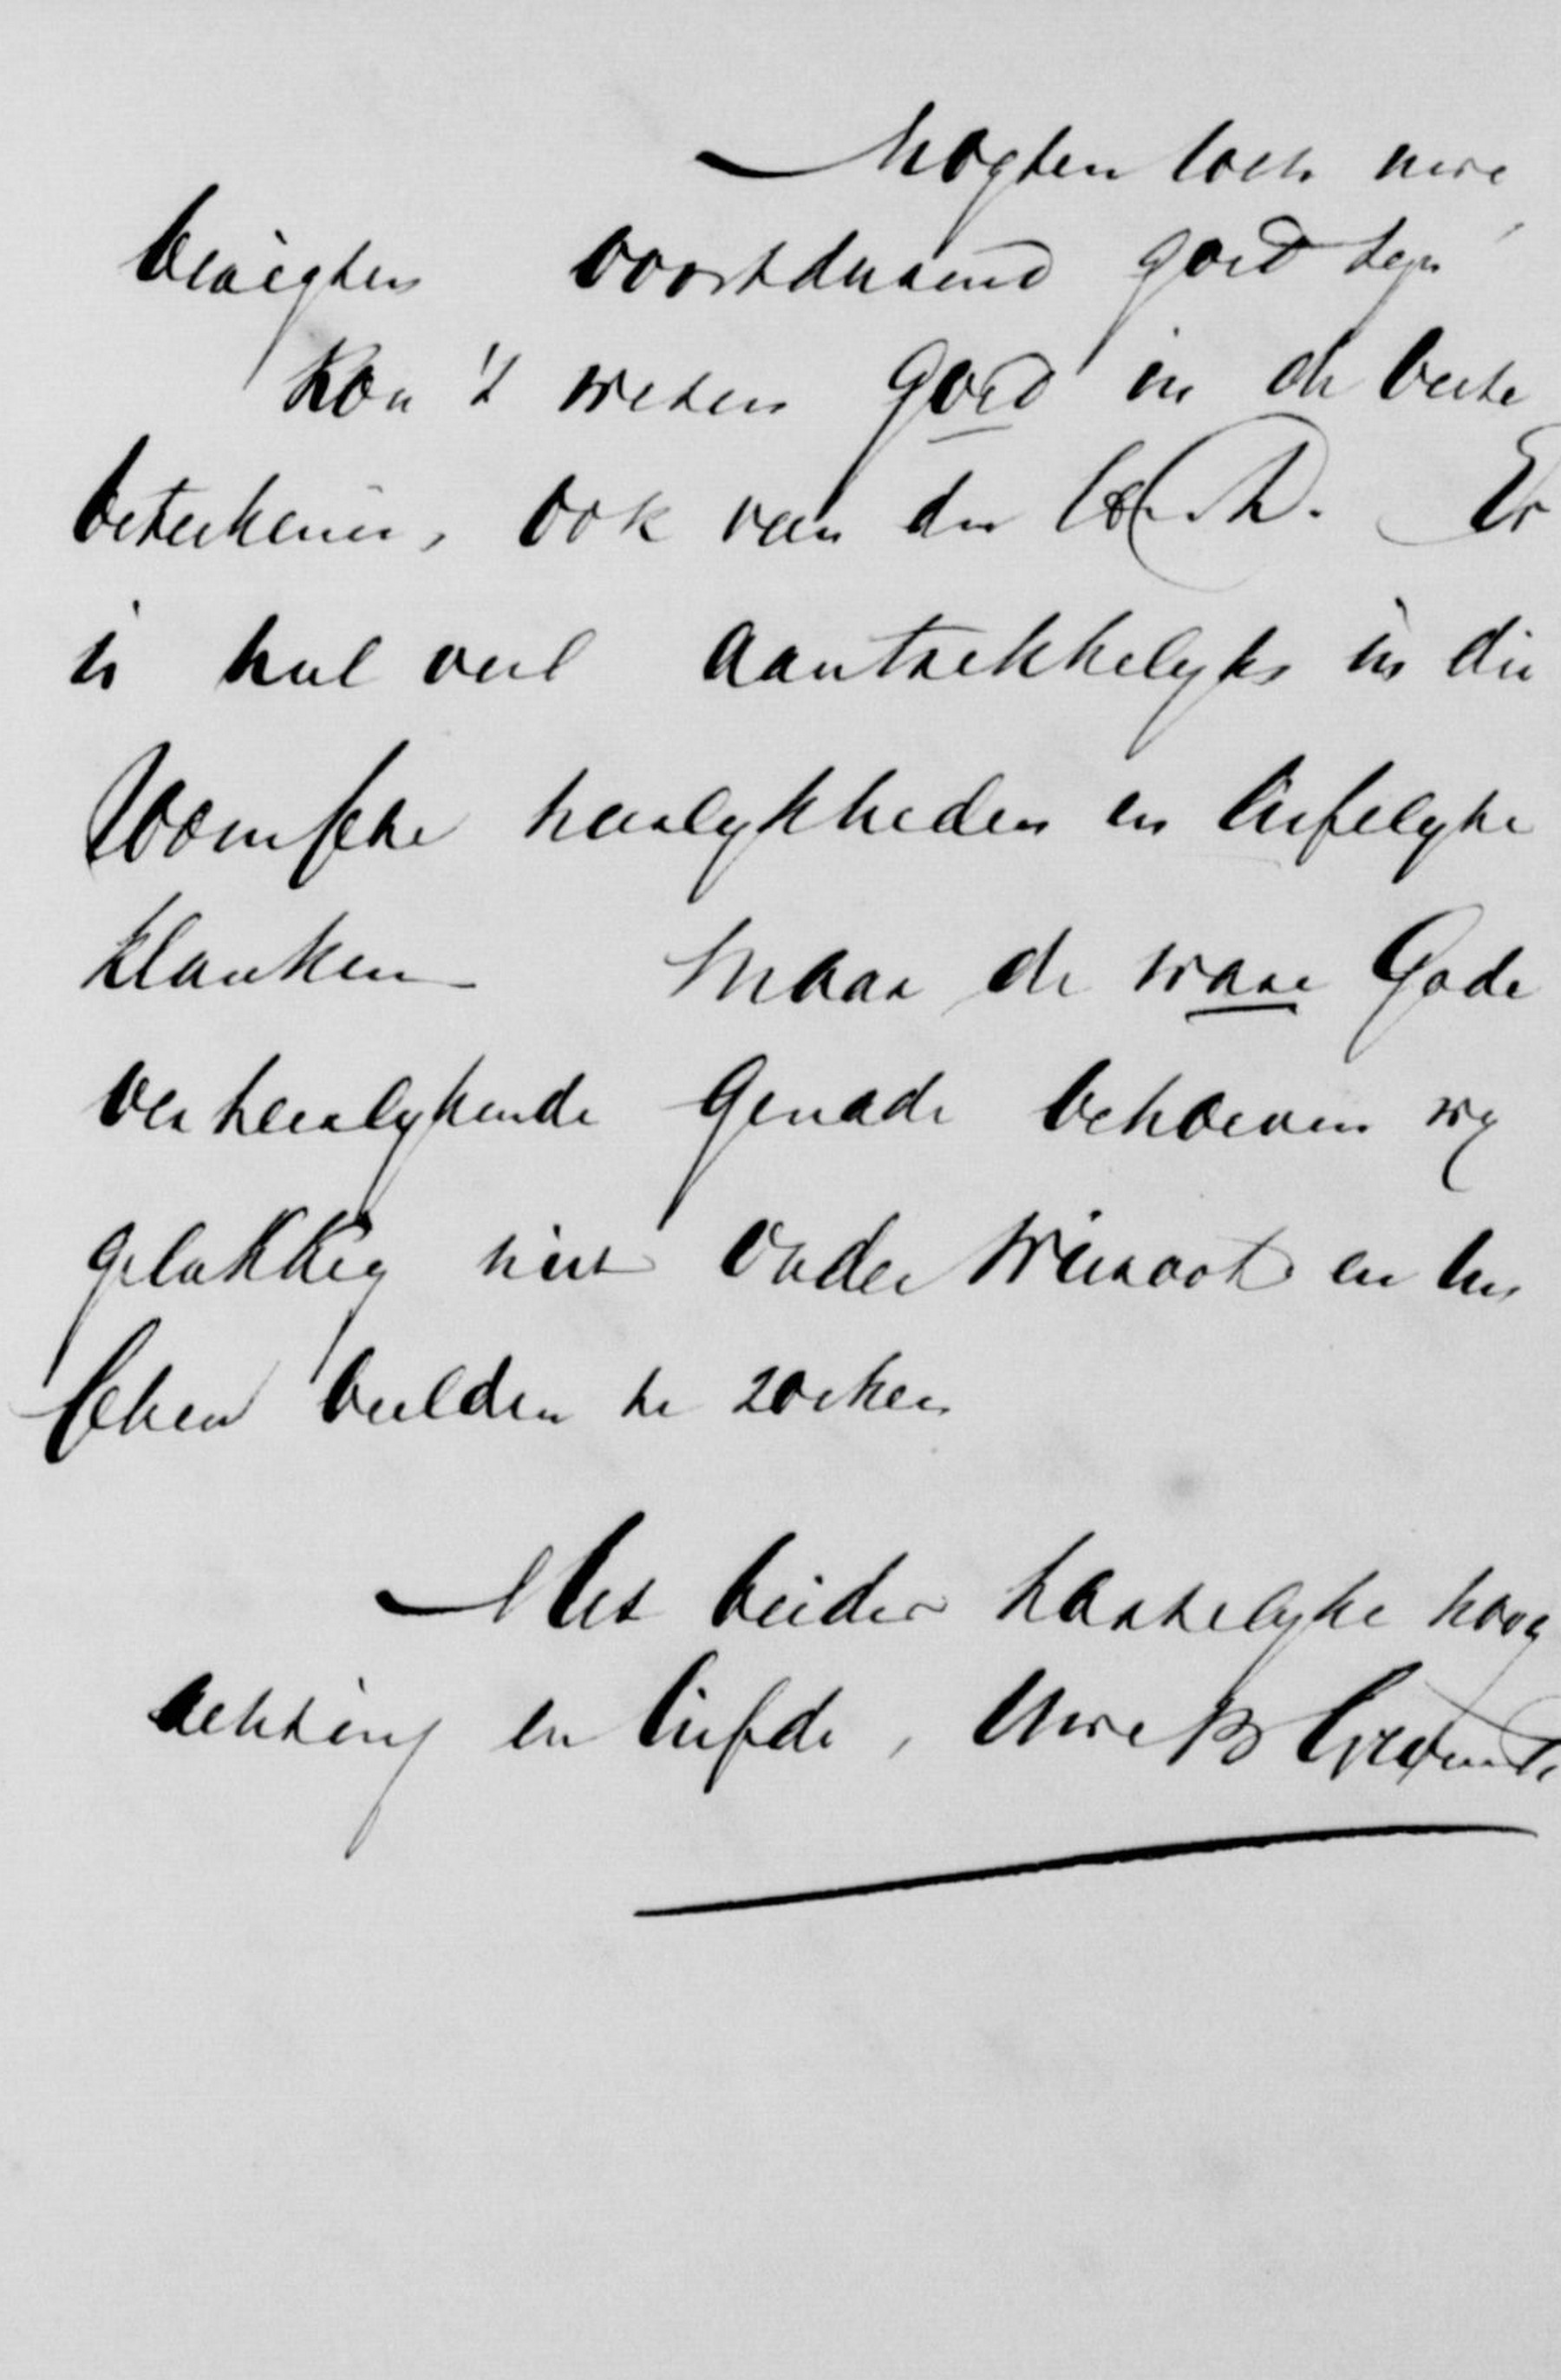 Mogten toch uwe
berigten voortdurend goed zyn
Kon 't wezen goed in de beste
beteekenis, ook van den
Er
is heel veel aantrekkelyks in die
Roomsche heerlykheden en liefelyke
klanken Maar de ware Gode
verheerlykende Genade behoeven wy
gelukkig niet onder wierook en tus
schen beelden te zoeken
Met beider hartelyke hoog
achting en liefde, Uwe